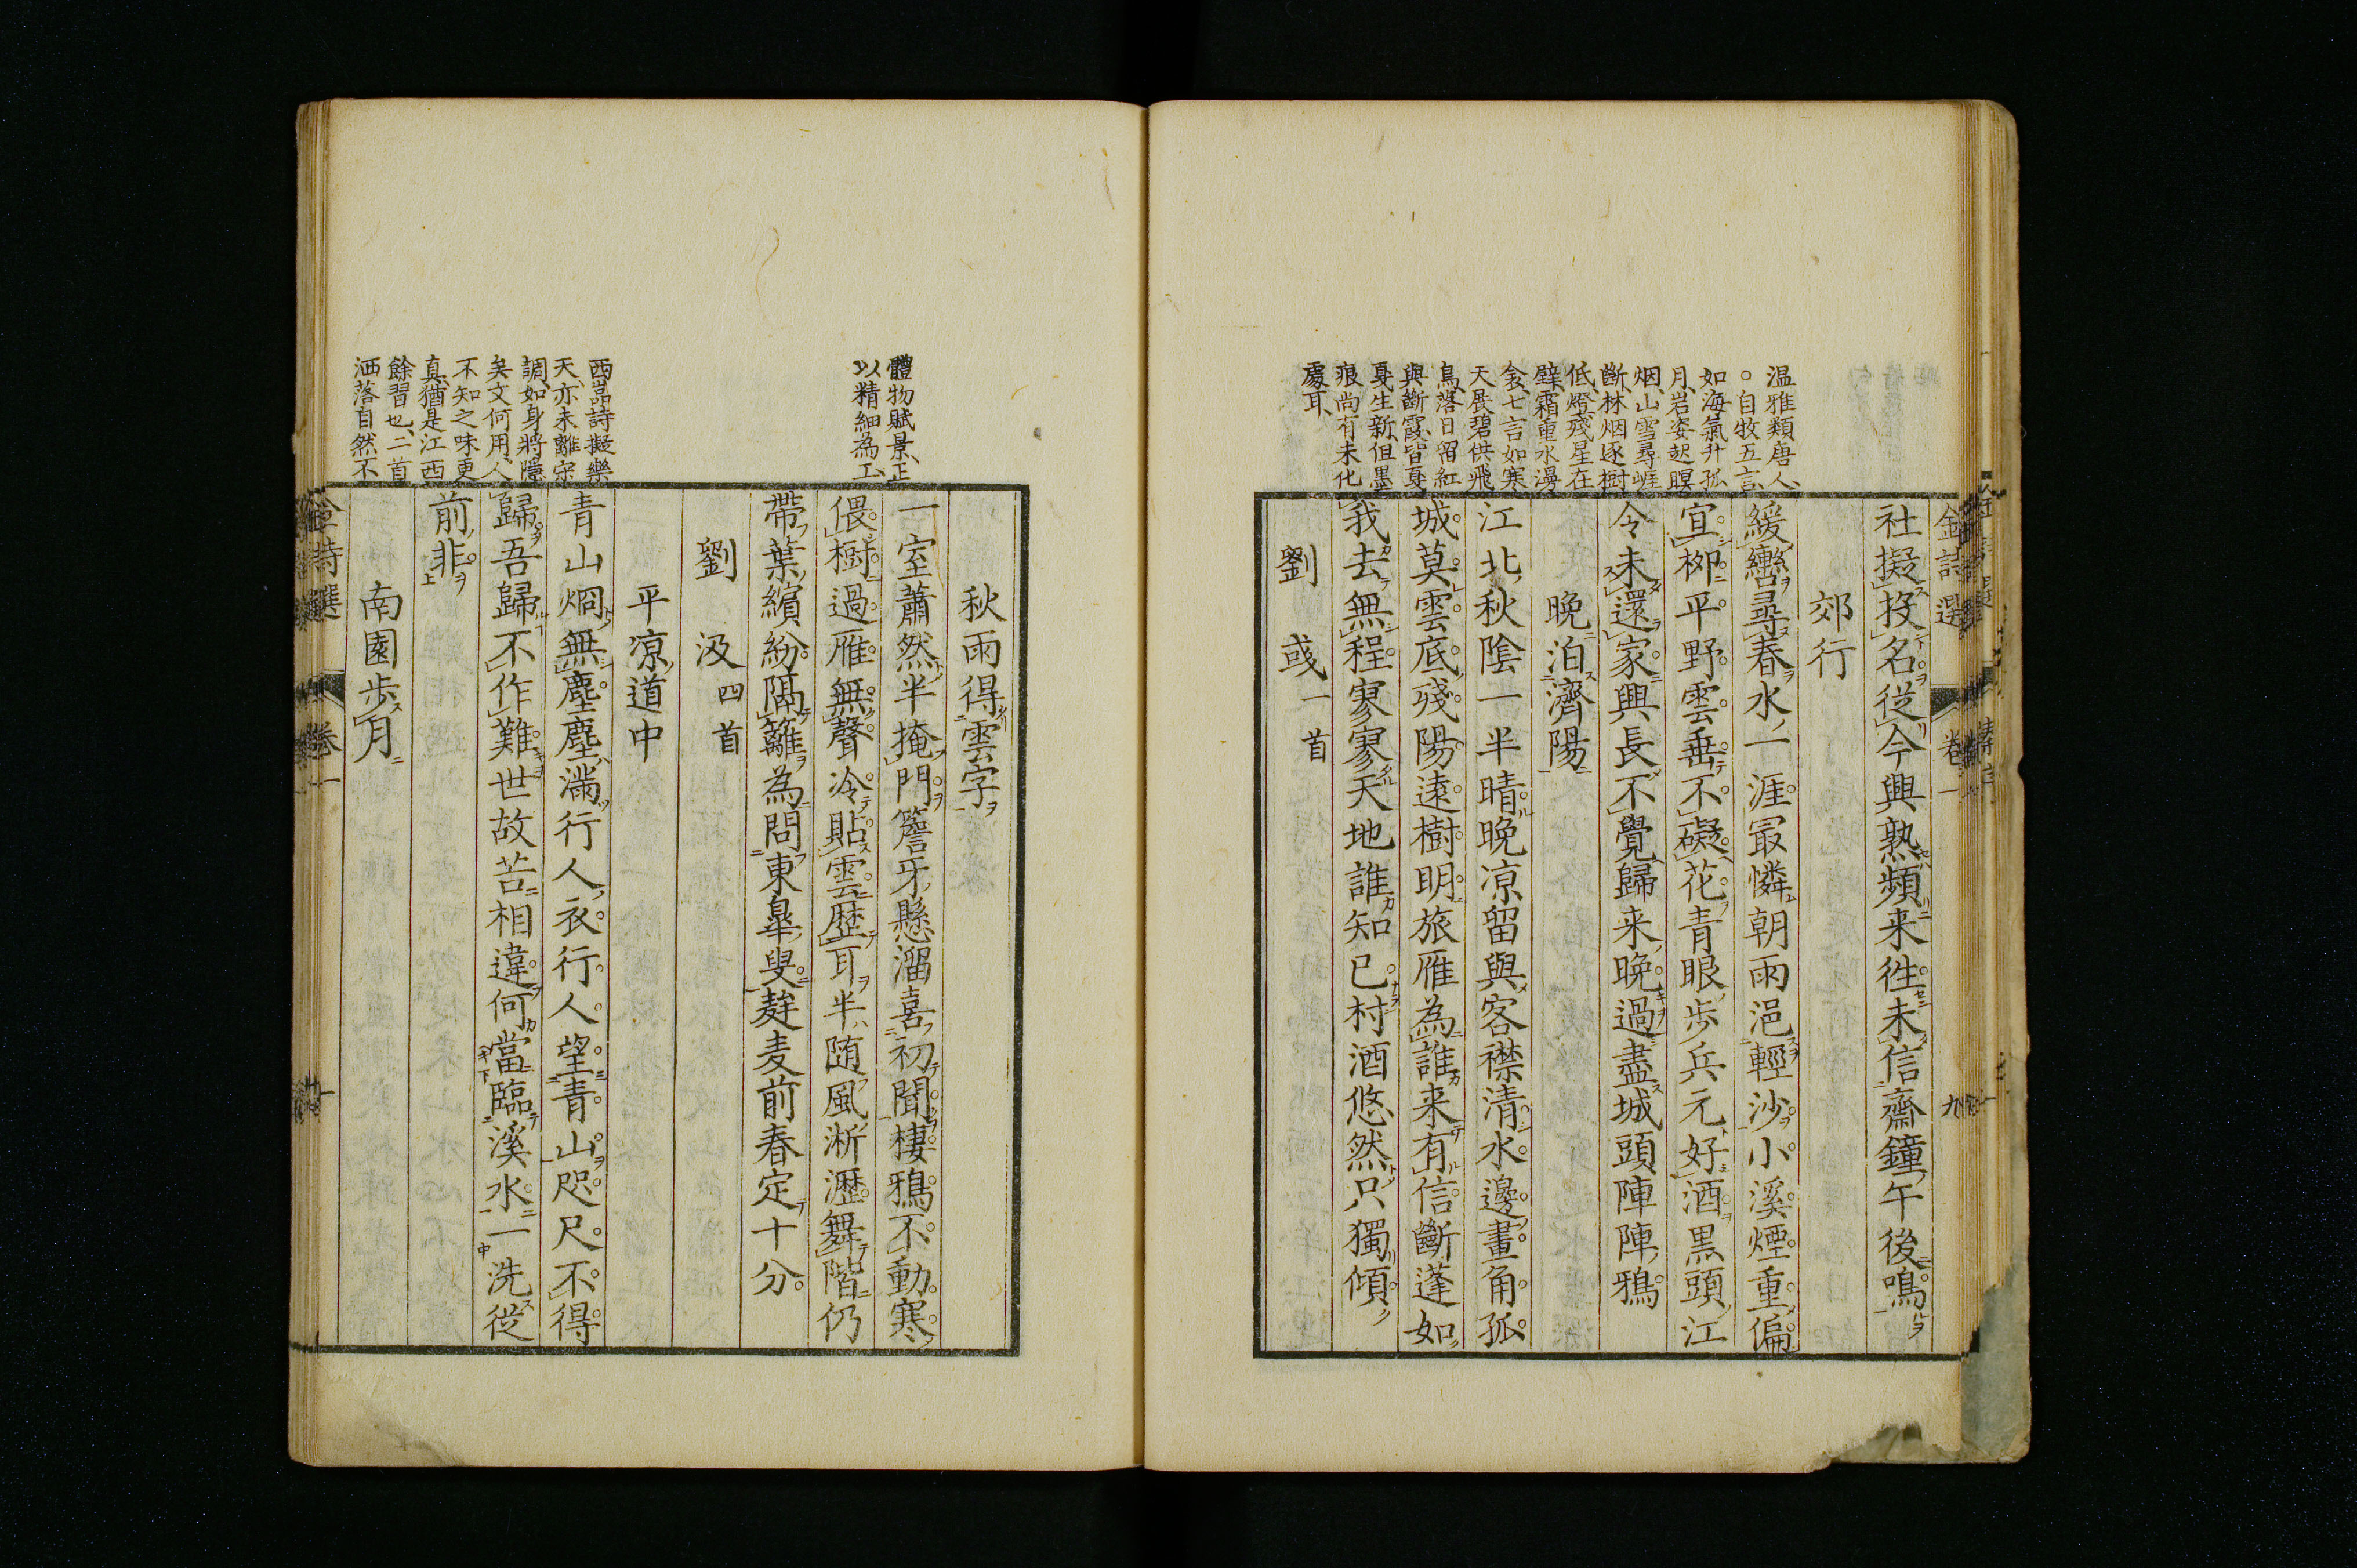 金詩選 卷一 九
社擬投名從今興熟頻来徃未信齋鐘午後鳴
郊行
緩轡尋春水一涯冣憐朝雨浥輕沙小溪煙重偏
宜柳平野雲垂不礙花青眼步兵元好酒黒頭江
令未還家興長不覺歸来晚過盡城頭陣陣鴉
晚泊濟陽
江北秋陰一半晴晚凉留與客襟清水邊畫角孤
城莫雲底殘陽遠樹明旅雁為誰来有信斷蓬如
我去無程寥寥天地誰知己村酒悠然只獨傾
劉彧一首
温雅類唐人
○自牧五言
如海氣升孤
月岩姿起暝
烟山雪尋崕
斷林烟逐樹
低燈殘星在
壁霜重水漫
舍七言如寒
天展碧供飛
鳥落日留紅
與斷霞皆戛
戛生新但墨
痕尚有未化
處耳
秋雨得雲字
一室蕭然半掩門簷牙懸溜喜初聞棲鴉不動寒
偎樹過雁無聲冷貼雲歴耳半随風淅瀝舞階仍
帶葉繽紛隔籬為問東臯叟麰麦前春定十分
劉汲四首
平凉道中
青山烱無塵塵滿行人衣行人望青山咫尺不得
歸吾歸不作難世故苦相違何當臨溪水一洗從
前非
南園步月
體物賦景正
以精細為工
西嵓詩擬樂
天亦未離宋
調如身將隱
矣文何用人
不知之味更
真猶是江西
餘習也二首
洒落自然不
金詩選 卷一